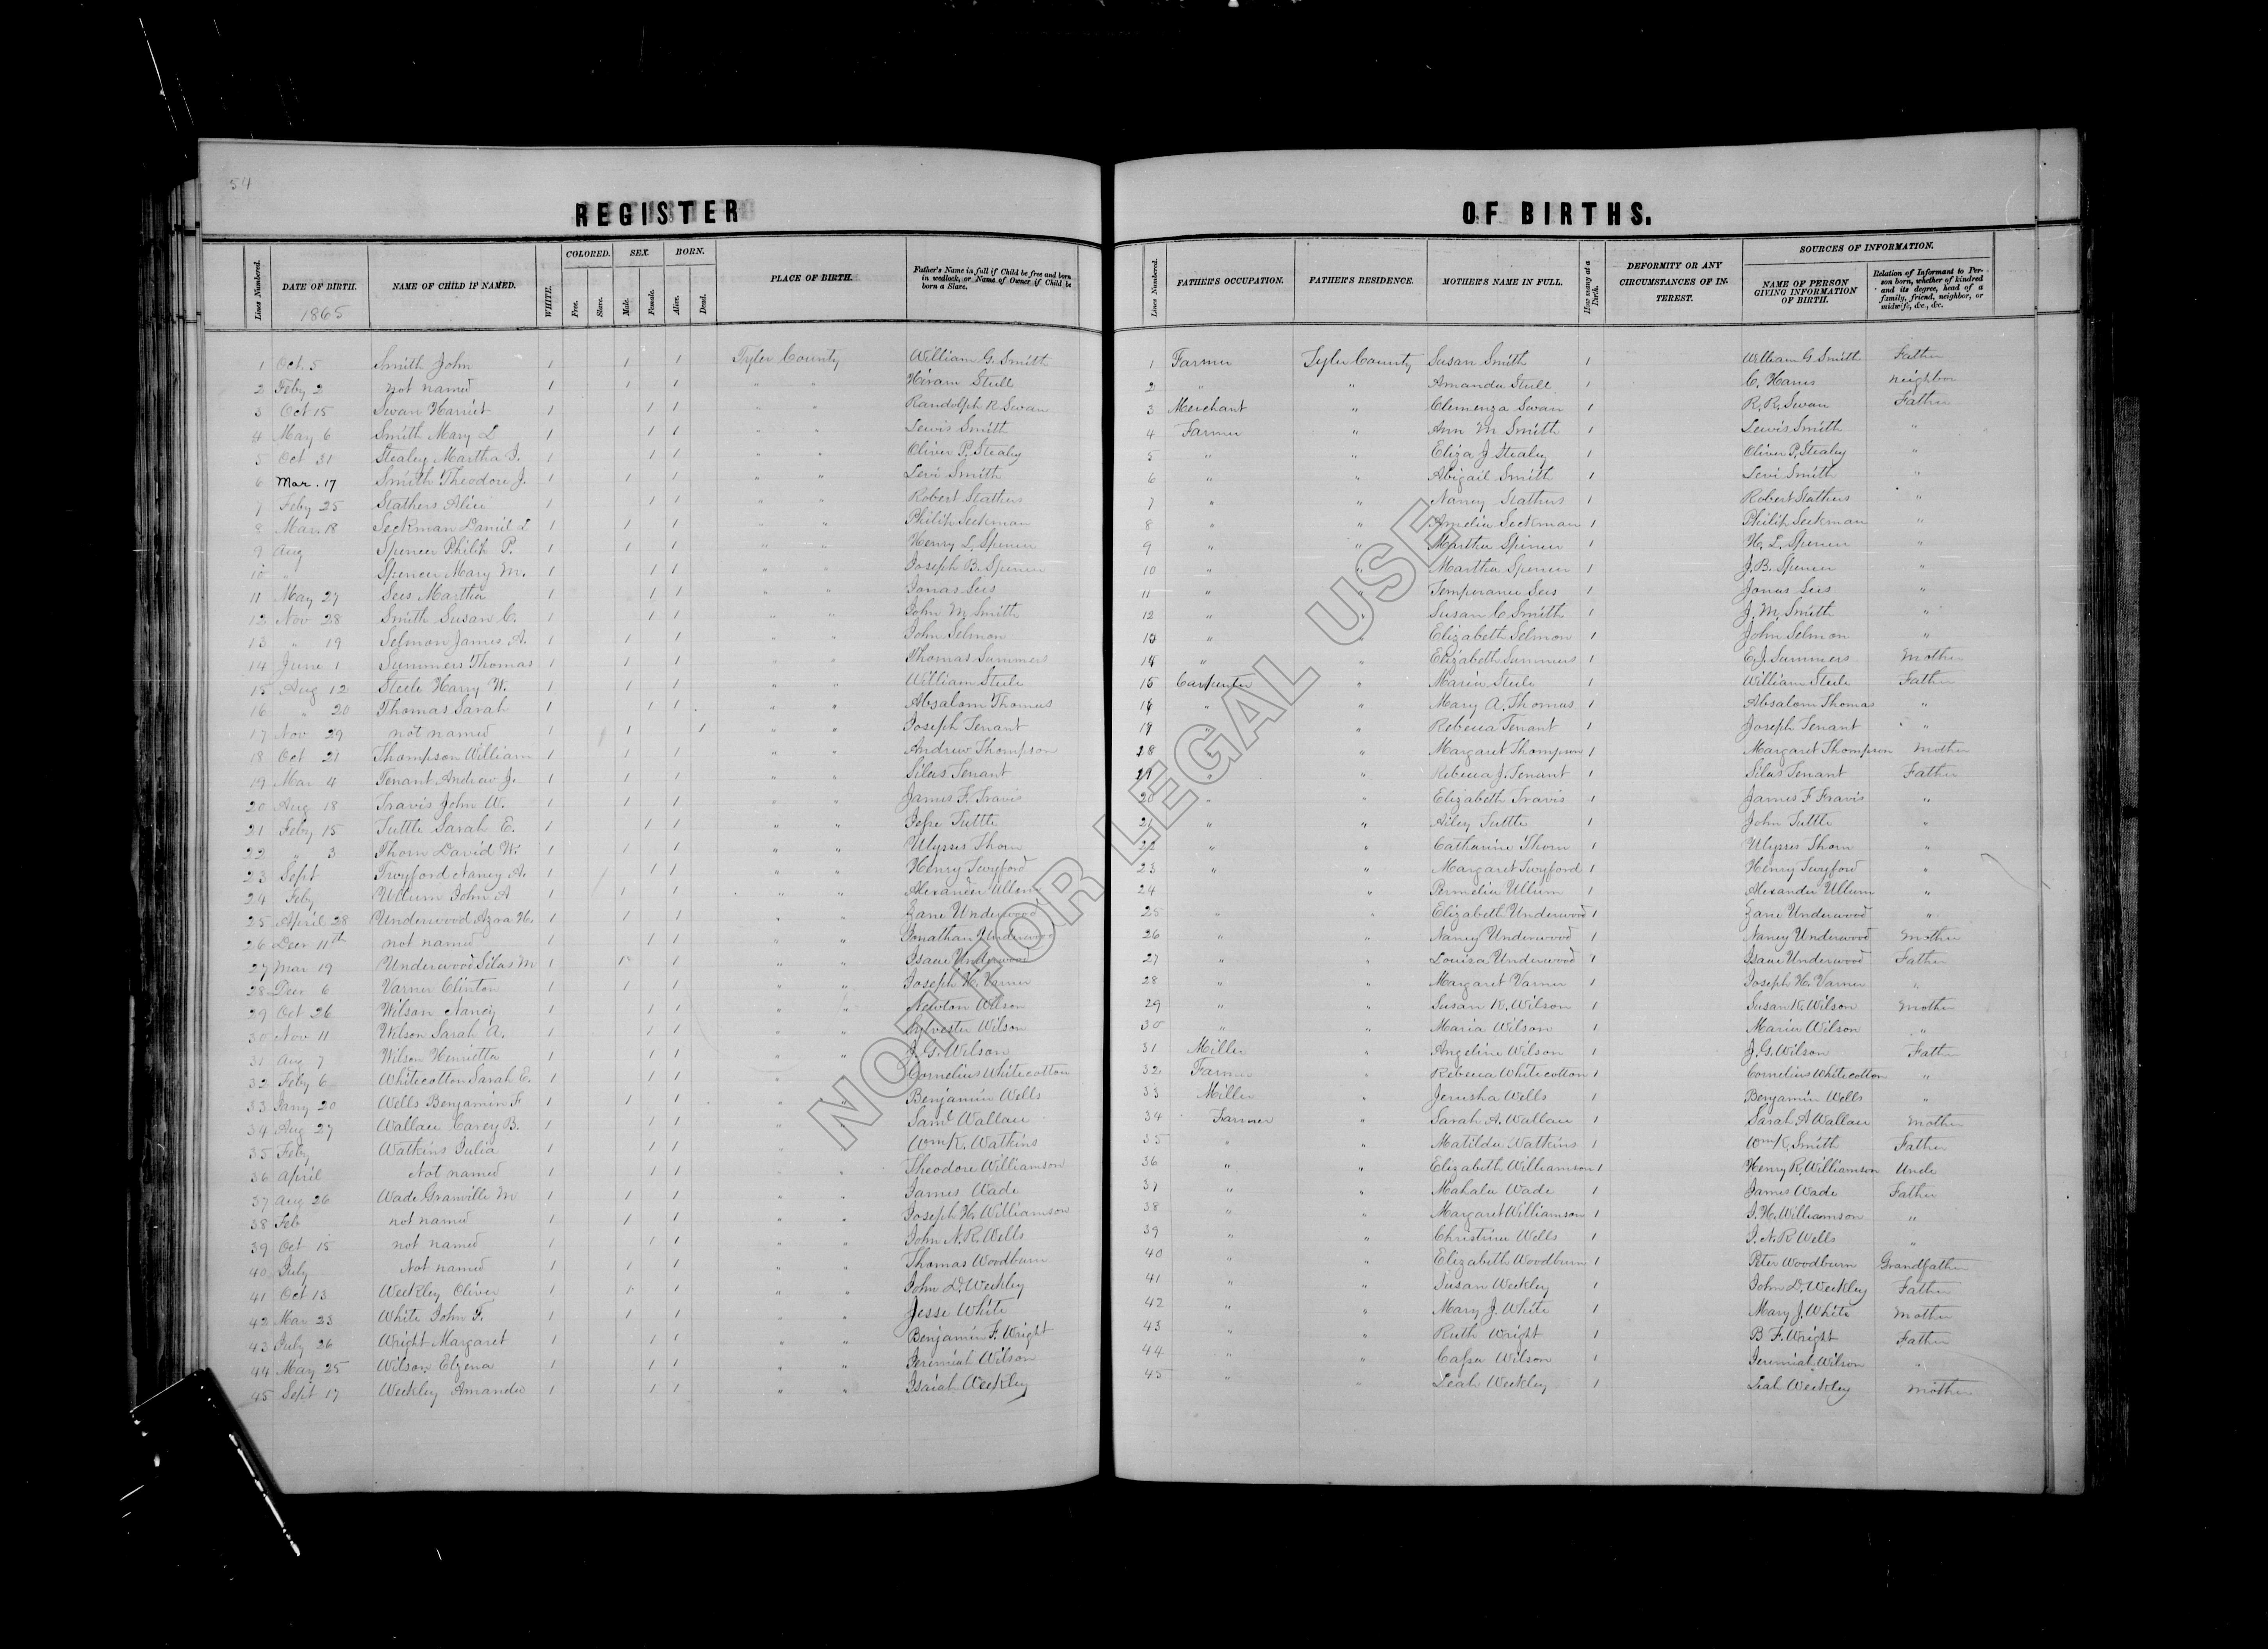 54
REGISTER OF BIRTHS.
Lines Numbered. DATE OF BIRTH. NAME OF CHILD IF NAMED. WHITE. COLORED. Free. Slave. SEX. Male. Female. BORN. Alive. Dead. PLACE OF BIRTH. Father's Name in full if Child be free and born in wedlock, or Name of Owner if Child be born a Slave. Lines Numbered. FATHER'S OCCUPATION. FATHER'S RESIDENCE. MOTHER'S NAME IN FULL. How many at a Birth. DEFORMITY OR ANY CIRCUMSTANCES OF INTEREST. SOURCES OF INFORMATION. NAME OF PERSON GIVING INFORMATION OF BIRTH. Relation of Informant to Person born, whether of kindred and its degree, head of a family, friend, neighbor, or midwife, &c., &c.
1865
1 Oct. 5 Smith John 1 1 1 Tyler County William G. Smith 1 Farmer Tyler County Susan Smith 1 William G Smith Father
2 Feby 2 not named 1 1 1 " " Hiram Stull 2 " " Amanda Stull 1 C. Hanes neighbor
3 Oct 15 Swan Harriet 1 1 1 " " Randolph R Swan 3 Merchant " Clemenza Swan 1 R. R. Swan Father
4 May 6 Smith Mary L 1 1 1 " " Lewis Smith 4 Farmer " Ann M Smith 1 Lewis Smith "
5 Oct 31 Stealey Martha J. 1 1 1 " " Oliver P. Stealey 5 " " Eliza J Stealey 1 Oliver P. Stealey "
6 Mar. 17 Smith Theodore J. 1 1 1 " " Levi Smith 6 " " Abigail Smith 1 Levi Smith "
7 Feby 25 Stathers Alice 1 1 1 " " Robert Stathers 7 " " Nancy Stathers 1 Robert Stathers "
8 Mar. 18 Seckman Daniel L 1 1 1 " " Philip Seckman 8 " " Amelia Seckman 1 Philip Seckman "
9 Aug Spencer Philip P. 1 1 1 " " Henry L. Spencer 9 " " Martha Spencer 1 H. L. Spencer "
10 " Spencer Mary M. 1 1 1 " " Joseph B. Spencer 10 " " Martha Spencer 1 J. B. Spencer "
11 May 27 Sees Martha 1 1 1 " " Jonas Sees 11 " " Temperance Sees 1 Jonas Sees "
12 Nov 28 Smith Susan C. 1 1 1 " " John M. Smith 12 " " Susan C Smith 1 J. M. Smith "
13 " 19 Selmon James A. 1 1 1 " " John Selmon 13 " " Elizabeth Selmon 1 John Selmon "
14 June 1 Summers Thomas 1 1 1 " " Thomas Summers 14 " " Elizabeth Summers 1 E. J. Summers Mother
15 Aug 12 Steele Harry W. 1 1 1 " " William Steele 15 Carpenter " Maria Steele 1 William Steele Father
16 " 20 Thomas Sarah 1 1 1 " " Absalom Thomas 16 " " Mary A. Thomas 1 Absalom Thomas "
17 Nov 29 not named 1 1 1 " " Joseph Tenant 17 " Rebecca Tenant 1 Joseph Tenant "
18 Oct 21 Thompson William 1 1 1 " " Andrew Thompson 18 " Margaret Thompson 1 Margaret Thompson Mother
19 Mar 4 Tenant Andrew J. 1 1 1 " " Silas Tenant 19 " " Rebecca J. Tenant 1 Silas Tenant Father
20 Aug 18 Travis John W. 1 1 1 " " James F. Travis 20 " " Elizabeth Travis 1 James F Travis "
21 Feby 15 Tuttle Sarah E. 1 1 1 " " Jesse Tuttle 21 " " Ailey Tuttle 1 John Tuttle "
22 " 3 Thorn David W. 1 1 1 " " Ulysses Thorn 22 " " Catharine Thorn 1 Ulysses Thorn "
23 Sept Twyford Nancy A. 1 1 1 " " Henry Twyford 23 " " Margaret Twyford 1 Henry Twyford "
24 Feby Ullum John A 1 1 1 " " Alexander Ullum 24 " Permelia Ullum 1 Alexander Ullum "
25 April 28 Underwood Azra H. 1 1 1 " " Zane Underwood 25 " " Elizabeth Underwood 1 Zane Underwood "
26 Decr 11th not named 1 1 1 " " Jonathan Underwood 26 " " Nancy Underwood 1 Nancy Underwood Mother
27 Mar 19 Underwood Silas M 1 1 1 " " Isaac Underwood 27 " " Louisa Underwood 1 Isaac Underwood Father
28 Decr 6 Varner Clinton 1 1 1 " " Joseph H. Varner 28 " " Margaret Varner 1 Joseph H. Varner "
29 Oct 26 Wilson Nancy 1 1 1 " " Newton Wilson 29 " " Susan K. Wilson 1 Susan K. Wilson Mother
30 Nov 11 Wilson Sarah A. 1 1 1 " " Sylvester Wilson 30 " " Maria Wilson 1 Maria Wilson "
31 Aug 7 Wilson Henrietta 1 1 1 " " J. G. Wilson 31 Miller " Angeline Wilson 1 J. G. Wilson Father
32 Feby 6 Whitecotton Sarah E. 1 1 1 " " Cornelius Whitecotton 32 Farmer " Rebecca Whitecotton 1 Cornelius Whitecotton "
33 Jany 20 Wells Benjamin F 1 1 1 " " Benjamin Wells 33 Miller " Jerusha Wells 1 Benjamin Wells "
34 Aug 27 Wallace Carey B. 1 1 1 " " Saml Wallace 34 Farmer " Sarah A. Wallace 1 Sarah A Wallace Mother
35 Feby Watkins Julia 1 1 1 " " Wm K. Watkins 35 " " Matilda Watkins 1 Wm K. Smith Father
36 April Not named 1 1 1 " " Theodore Williamson 36 " " Elizabeth Williamson 1 Henry R. Williamson Uncle
37 Aug 26 Wade Granville M 1 1 1 " " James Wade 37 " " Mahala Wade 1 James Wade Father
38 Feb not named 1 1 1 " " Joseph H. Williamson 38 " " Margaret Williamson 1 J. H. Williamson "
39 Oct 15 not named 1 1 1 " " John N. R. Wells 39 " " Christina Wells 1 J. N. R Wells "
40 July Not named 1 1 1 " " Thomas Woodburn 40 " " Elizabeth Woodburn 1 Peter Woodburn Grandfather
41 Oct 13 Weekley Oliver 1 1 1 " " John D. Weekley 41 " " Susan Weekley 1 John D. Weekley Father
42 Mar 23 White John F. 1 1 1 " " Jesse White 42 " " Mary J. White 1 Mary J. White Mother
43 July 26 Wright Margaret 1 1 1 " " Benjamin F. Wright 43 " " Ruth Wright 1 B F. Wright Father
44 May 25 Wilson Elzena 1 1 1 " " Jeremiah Wilson 44 " " Wilson 1 Jeremiah Wilson "
45 Sept 17 Weekley Amanda 1 1 1 " " Isaiah Weekley 45 " " Leah Weekley 1 Leah Weekley Mother
NOT FOR LEGAL USE